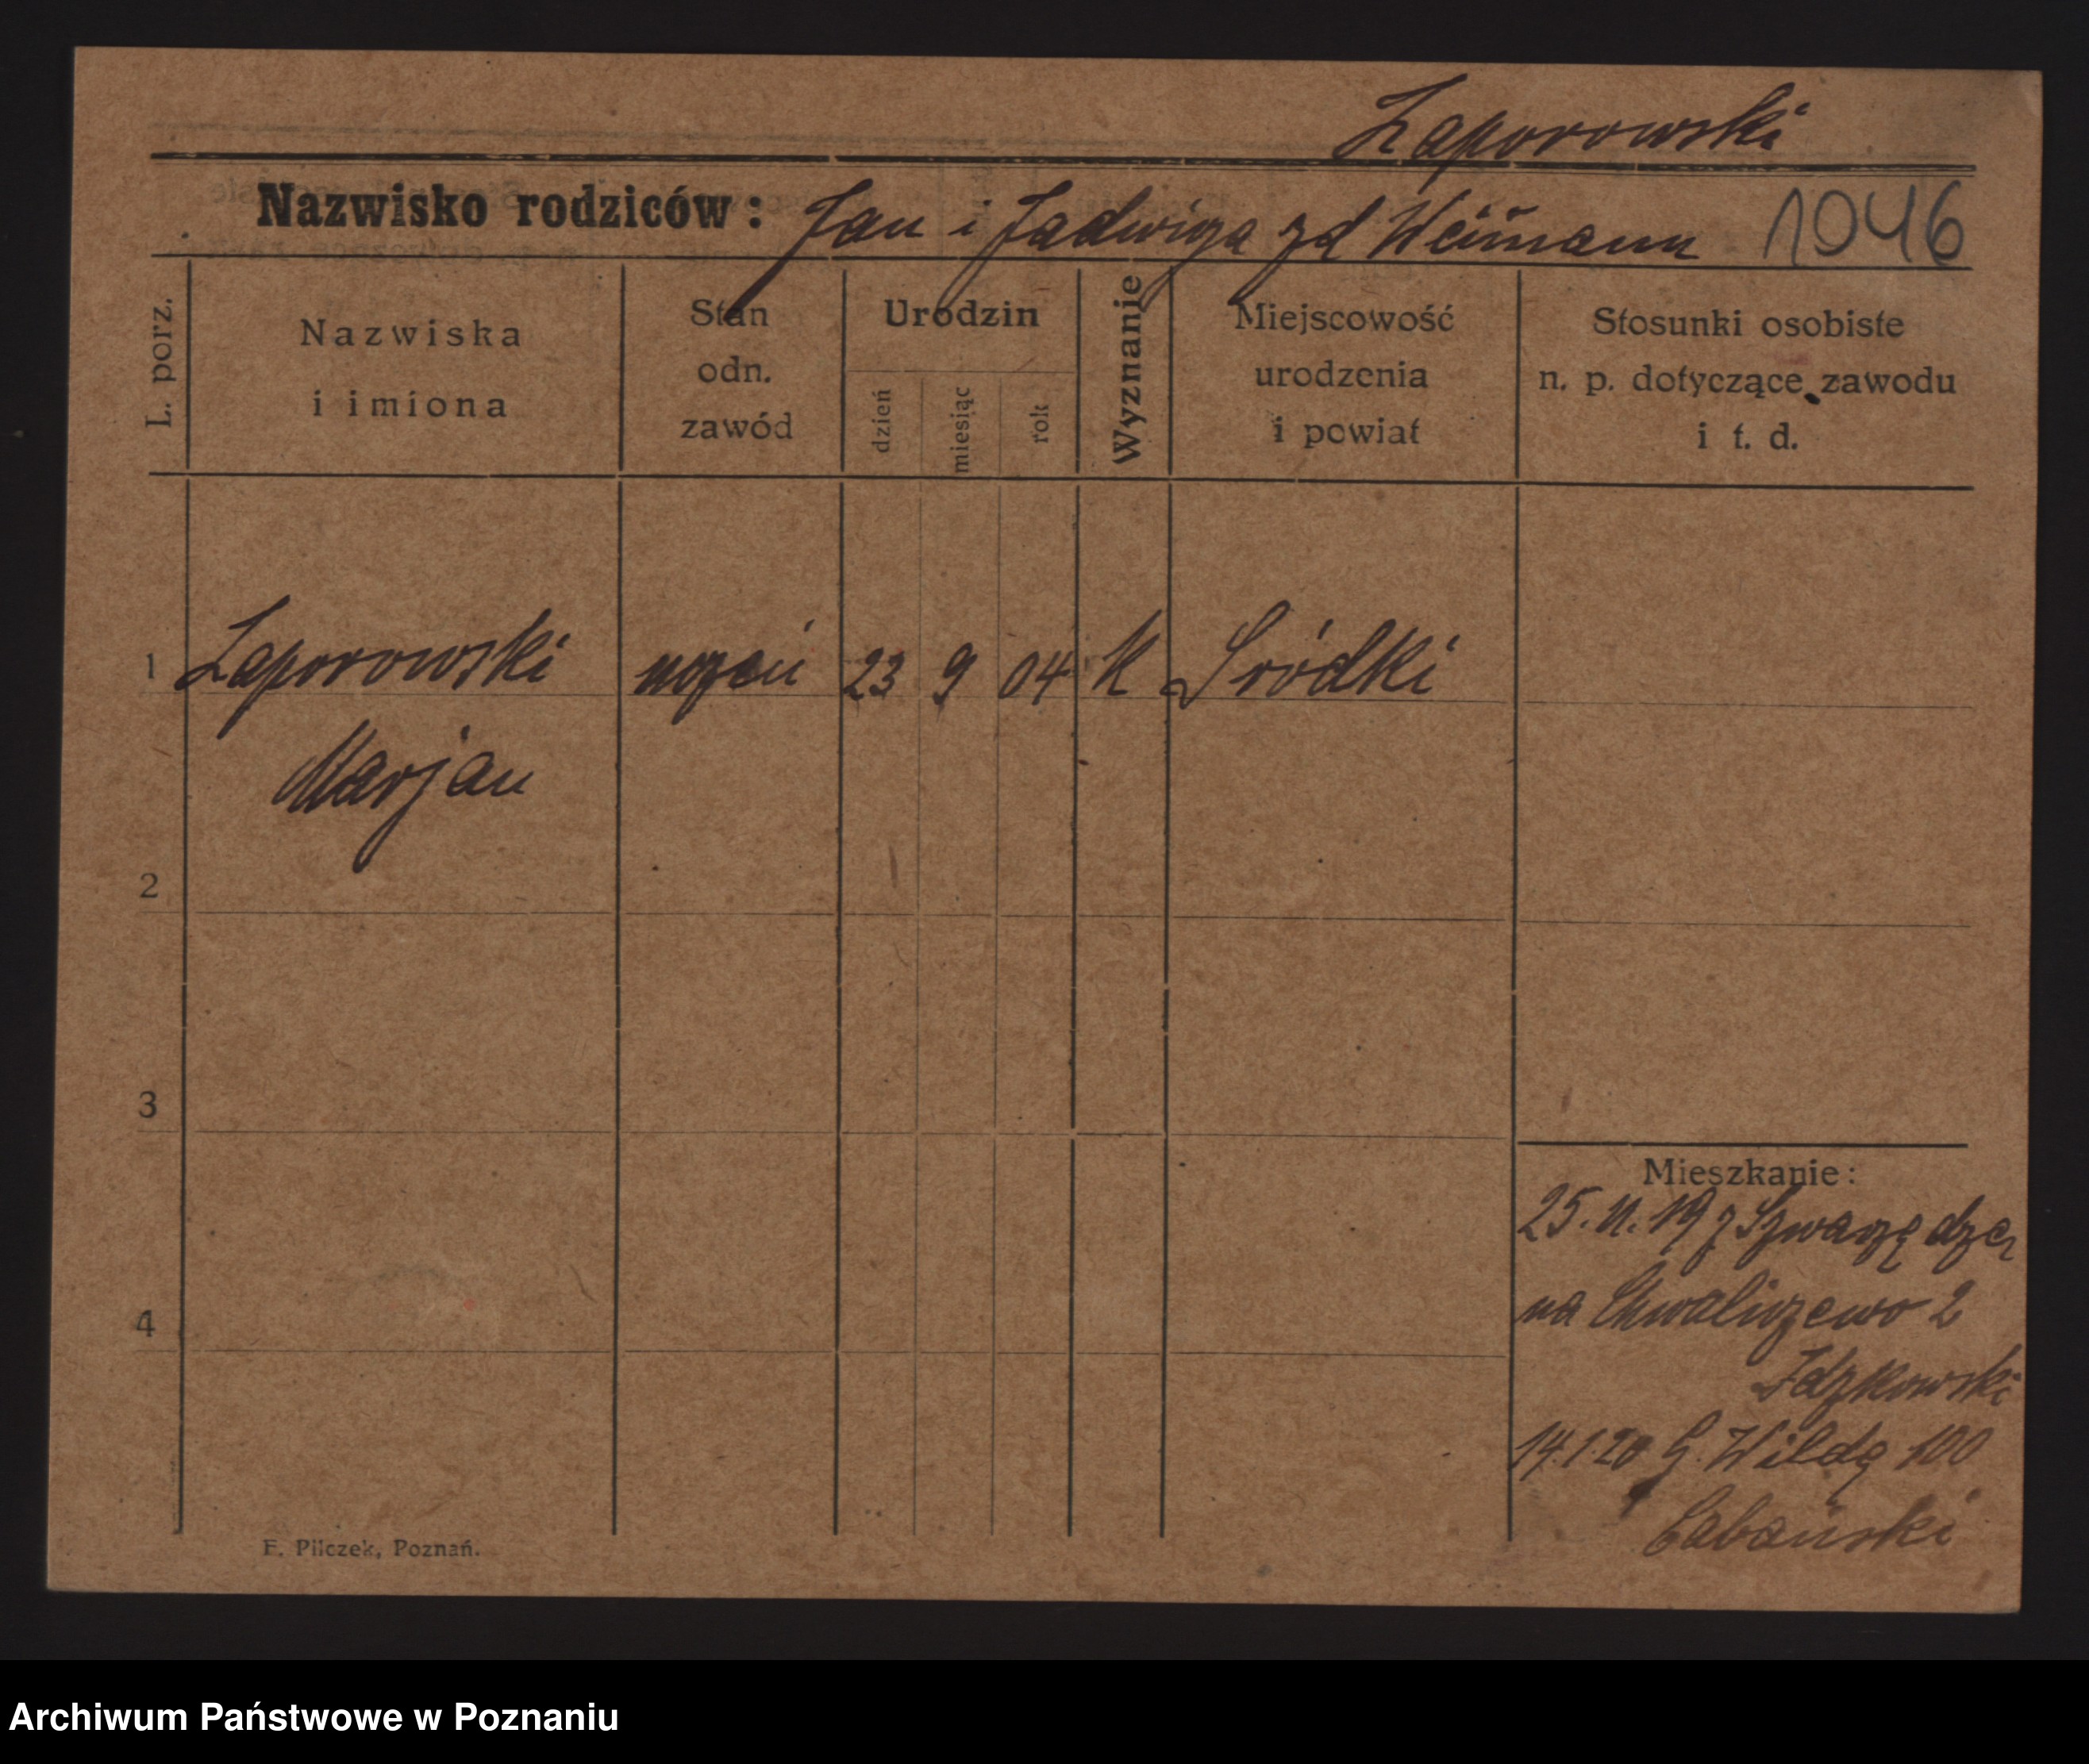 Zaporowski
Nazwisko rodziców: Jan i Jadwiga zd Weimann 1046
L. porz.
Nazwiska i imiona
Stan odn. zawód
Urodzin
dzień miesiąc rok
Wyznanie
Miejscowość urodzenia i powiat
Stosunki osobiste n. p. dotyczące zawodu i t. d.
1 Zaporowski uczeń 23 9 04 K Śródki
Marjan
2
3
4
Mieszkanie:
25.11.19 z Szwarzędza
na Chwaliczewo 2
Idzkowski
14.1.20 G. Wilda 100
Łabański
F. Pilczek, Poznań.
Archiwum Państwowe w Poznaniu